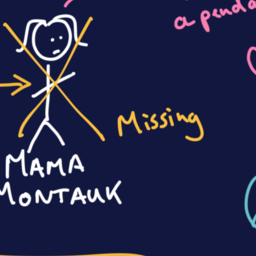 a panda
Missing
MAMA
MONTAUK